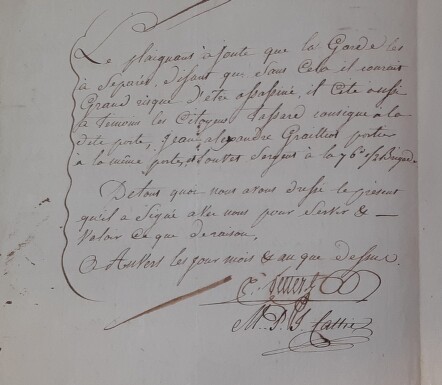 Le plaignant ajoute que la Garde les
à Séparés, disant que Sans Cela il couroit
Grand risque d'être assassiné, il Cite aussi
à temoins les Citoyens Tassard consigne a la
dite porte, Jean alexandre Graillot portier
à la même porte, et Louvet Sergent à la 76e 1/2 Brigade
De tout quoi nous avons dressé le present
qu'il a Signé avec nous pour Servir &
Valoir Ce que de raison.
A Anvers les jour mois & an que dessus.
M. P. J. Cattrie